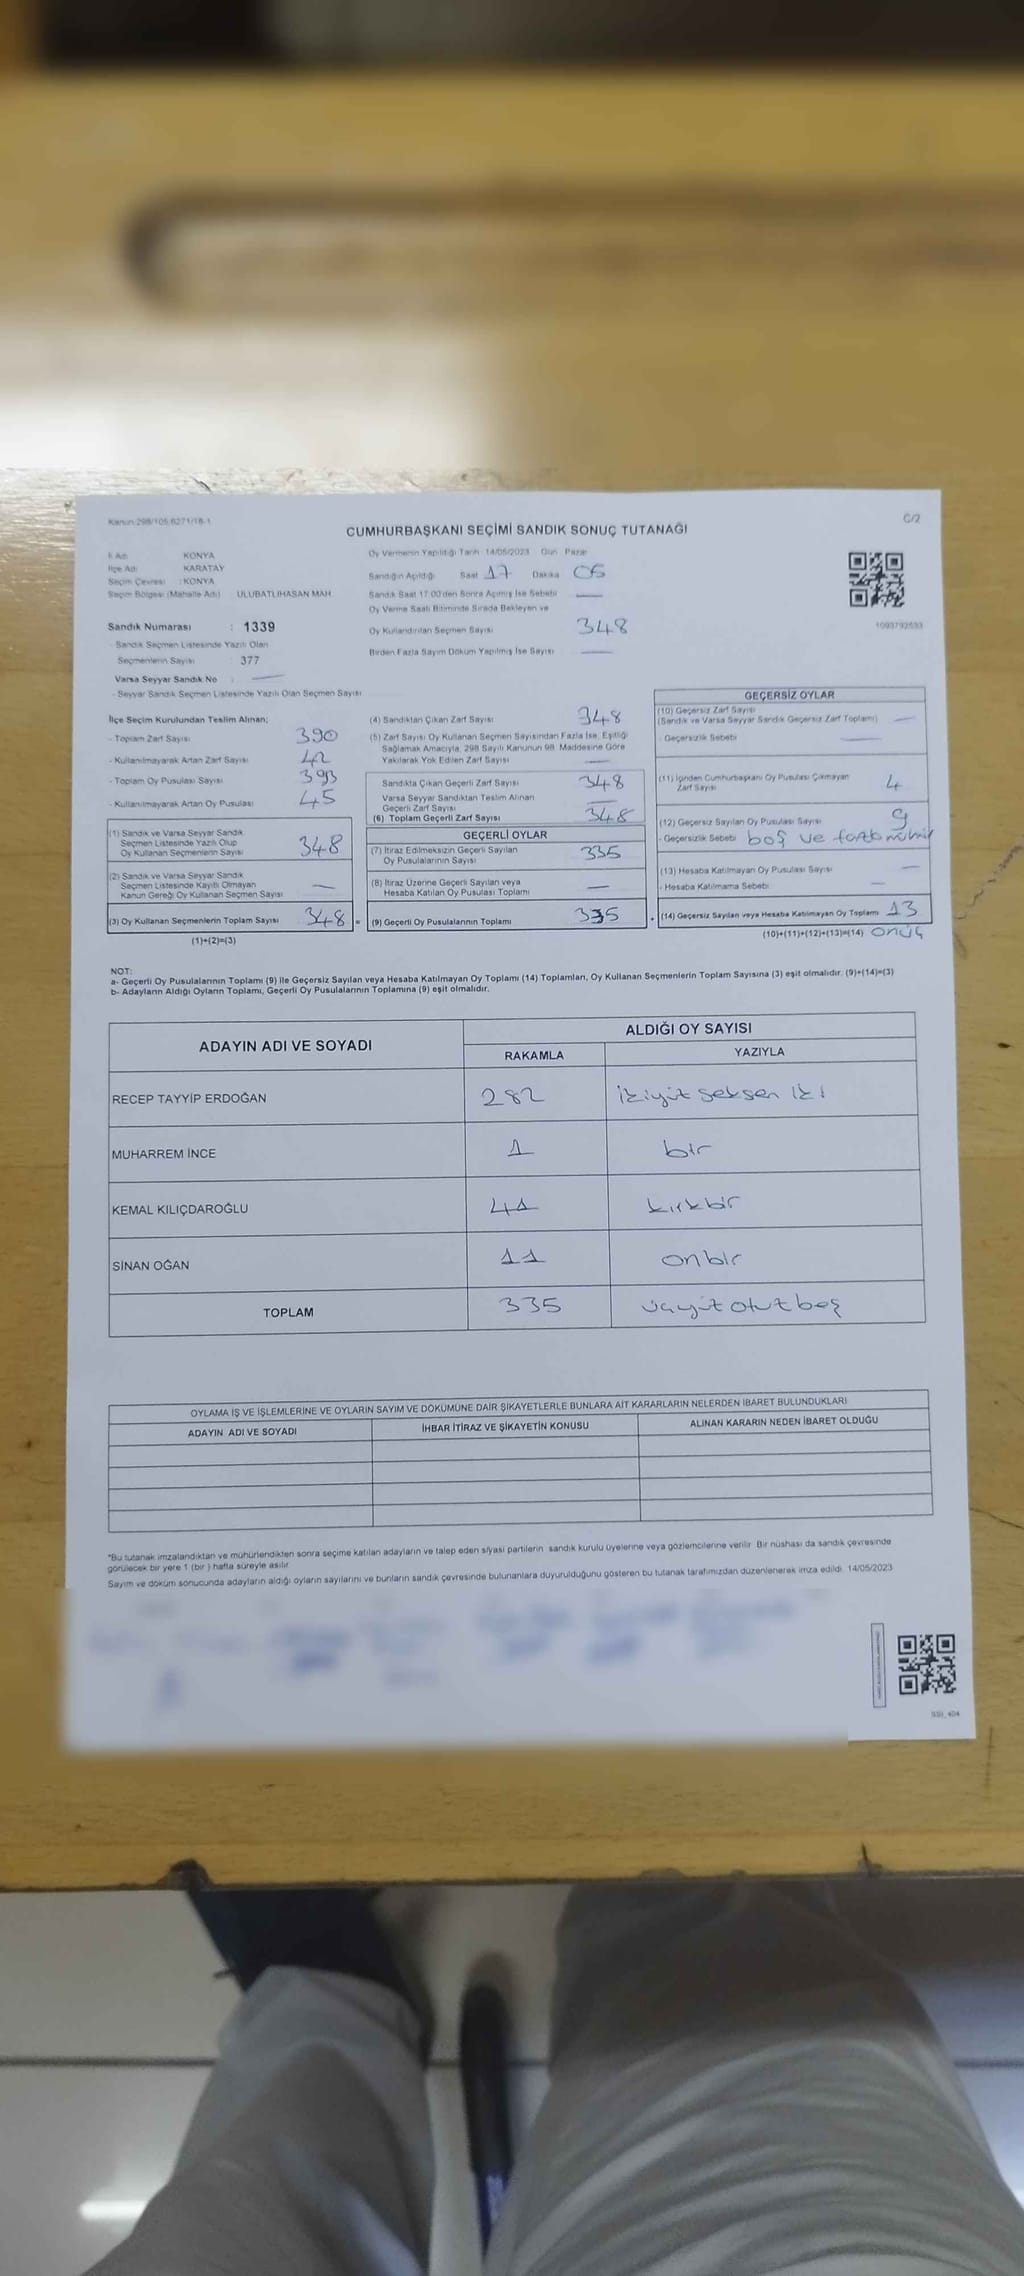 Kanun:298/105,6271/18-1
C/2
CUMHURBAŞKANI SEÇİMİ SANDIK SONUÇ TUTANAĞI
İl Adı KONYA
İlçe Adı KARATAY
Seçim Çevresi : KONYA
Seçim Bölgesi (Mahalle Adı) ULUBATLIHASAN MAH.
Sandık Numarası : 1339
- Sandık Seçmen Listesinde Yazılı Olan
Seçmenlerin Sayısı : 377
Varsa Seyyar Sandık No : —
- Seyyar Sandık Seçmen Listesinde Yazılı Olan Seçmen Sayısı
Oy Vermenin Yapıldığı Tarih 14/05/2023 Gün Pazar
Sandığın Açıldığı Saat 17 Dakika 05
Sandık Saat 17:00'den Sonra Açılmış İse Sebebi —
Oy Verme Saati Bitiminde Sırada Bekleyen ve
Oy Kullandırılan Seçmen Sayısı 348
Birden Fazla Sayım Döküm Yapılmış İse Sayısı —
1093792533
İlçe Seçim Kurulundan Teslim Alınan;
- Toplam Zarf Sayısı 390
- Kullanılmayarak Artan Zarf Sayısı 42
- Toplam Oy Pusulası Sayısı 393
- Kullanılmayarak Artan Oy Pusulası 45
(1) Sandık ve Varsa Seyyar Sandık
Seçmen Listesinde Yazılı Olup
Oy Kullanan Seçmenlerin Sayısı 348
(2) Sandık ve Varsa Seyyar Sandık
Seçmen Listesinde Kayıtlı Olmayan
Kanun Gereği Oy Kullanan Seçmen Sayısı —
(3) Oy Kullanan Seçmenlerin Toplam Sayısı 348 =
(1)+(2)=(3)
(4) Sandıktan Çıkan Zarf Sayısı 348
(5) Zarf Sayısı Oy Kullanan Seçmen Sayısından Fazla İse, Eşitliği
Sağlamak Amacıyla, 298 Sayılı Kanunun 98. Maddesine Göre
Yakılarak Yok Edilen Zarf Sayısı —
Sandıkta Çıkan Geçerli Zarf Sayısı 348
Varsa Seyyar Sandıktan Teslim Alınan
Geçerli Zarf Sayısı —
(6) Toplam Geçerli Zarf Sayısı 348
GEÇERLİ OYLAR
(7) İtiraz Edilmeksizin Geçerli Sayılan
Oy Pusulalarının Sayısı 335
(8) İtiraz Üzerine Geçerli Sayılan veya
Hesaba Katılan Oy Pusulası Toplamı —
(9) Geçerli Oy Pusulalarının Toplamı 335 +
GEÇERSİZ OYLAR
(10) Geçersiz Zarf Sayısı
(Sandık ve Varsa Seyyar Sandık Geçersiz Zarf Toplamı) —
- Geçersizlik Sebebi —
(11) İçinden Cumhurbaşkanı Oy Pusulası Çıkmayan
Zarf Sayısı 4
(12) Geçersiz Sayılan Oy Pusulası Sayısı 9
- Geçersizlik Sebebi boş ve fazla mühür
(13) Hesaba Katılmayan Oy Pusulası Sayısı —
- Hesaba Katılmama Sebebi —
(14) Geçersiz Sayılan veya Hesaba Katılmayan Oy Toplamı 13
(10)+(11)+(12)+(13)=(14) onüç
NOT:
a- Geçerli Oy Pusulalarının Toplamı (9) ile Geçersiz Sayılan veya Hesaba Katılmayan Oy Toplamı (14) Toplamları, Oy Kullanan Seçmenlerin Toplam Sayısına (3) eşit olmalıdır. (9)+(14)=(3)
b- Adayların Aldığı Oyların Toplamı, Geçerli Oy Pusulalarının Toplamına (9) eşit olmalıdır.
ADAYIN ADI VE SOYADI
ALDIĞI OY SAYISI
RAKAMLA YAZIYLA
RECEP TAYYİP ERDOĞAN 282 ikiyüz seksen iki
MUHARREM İNCE 1 bir
KEMAL KILIÇDAROĞLU 41 kırkbir
SİNAN OĞAN 11 onbir
TOPLAM 335 üçyüz otuz beş
OYLAMA İŞ VE İŞLEMLERİNE VE OYLARIN SAYIM VE DÖKÜMÜNE DAİR ŞİKAYETLERLE BUNLARA AİT KARARLARIN NELERDEN İBARET BULUNDUKLARI
ADAYIN ADI VE SOYADI İHBAR İTİRAZ VE ŞİKAYETİN KONUSU ALINAN KARARIN NEDEN İBARET OLDUĞU
*Bu tutanak imzalandıktan ve mühürlendikten sonra seçime katılan adayların ve talep eden siyasi partilerin sandık kurulu üyelerine veya gözlemcilerine verilir. Bir nüshası da sandık çevresinde
görülecek bir yere 1 (bir) hafta süreyle asılır.
Sayım ve döküm sonucunda adayların aldığı oyların sayılarını ve bunların sandık çevresinde bulunanlara duyurulduğunu gösteren bu tutanak tarafımızdan düzenlenerek imza edildi. 14/05/2023